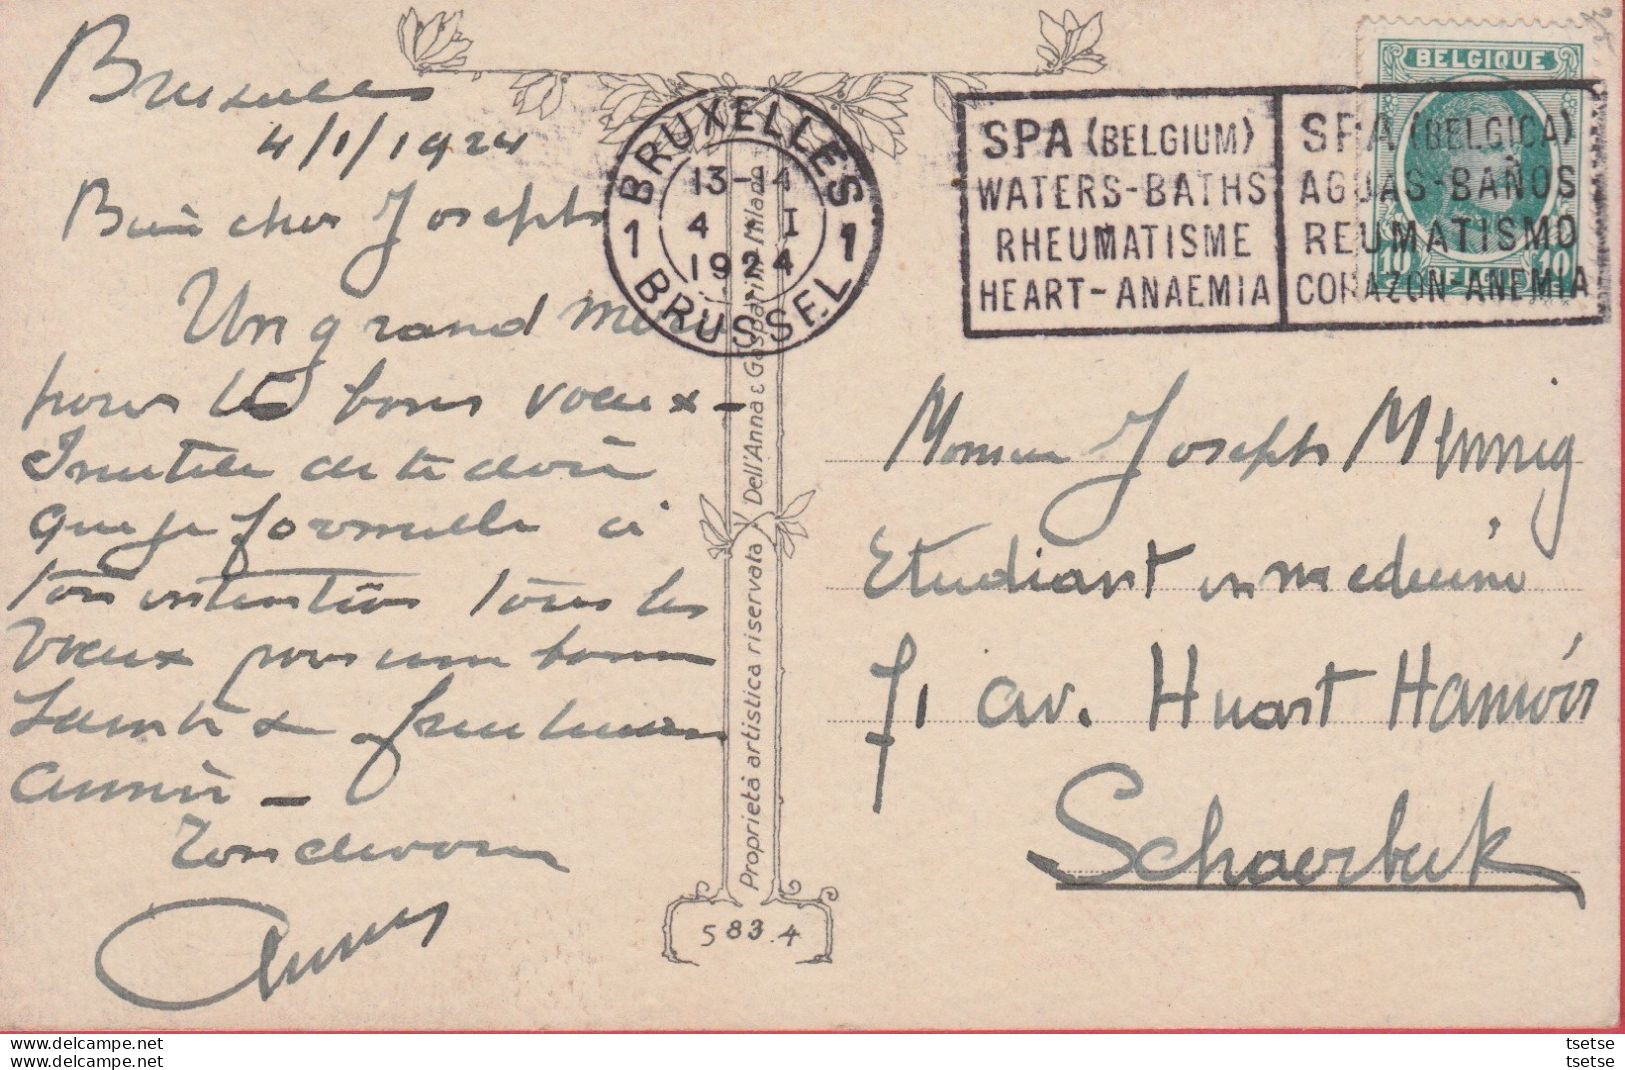 Bruxelles
4/1/1924
Bien cher Joseph
Un grand merci
pour les bons voeux –
Inutile de te dire
que je formulle à
ton intention tous les
voeux pour une bonne
Santé &
année –
Ton dévoué
BELGIQUE
10 BELGIË 10
1 BRUXELLES 1
13-14
4 I
1924
BRUSSEL
SPA (BELGIUM)
WATERS-BATHS
RHEUMATISME
HEART-ANAEMIA
SPA (BELGICA)
AGUAS-BAÑOS
REUMATISMO
CORAZON-ANEMIA
Proprietà artistica riservata Dell'Anna & Gasparini Milano
583.4
Monsieur Joseph Mennig
Etudiant en medecine
71 av. Huart Hamoir
Schaerbeek
tsetse
tsetse